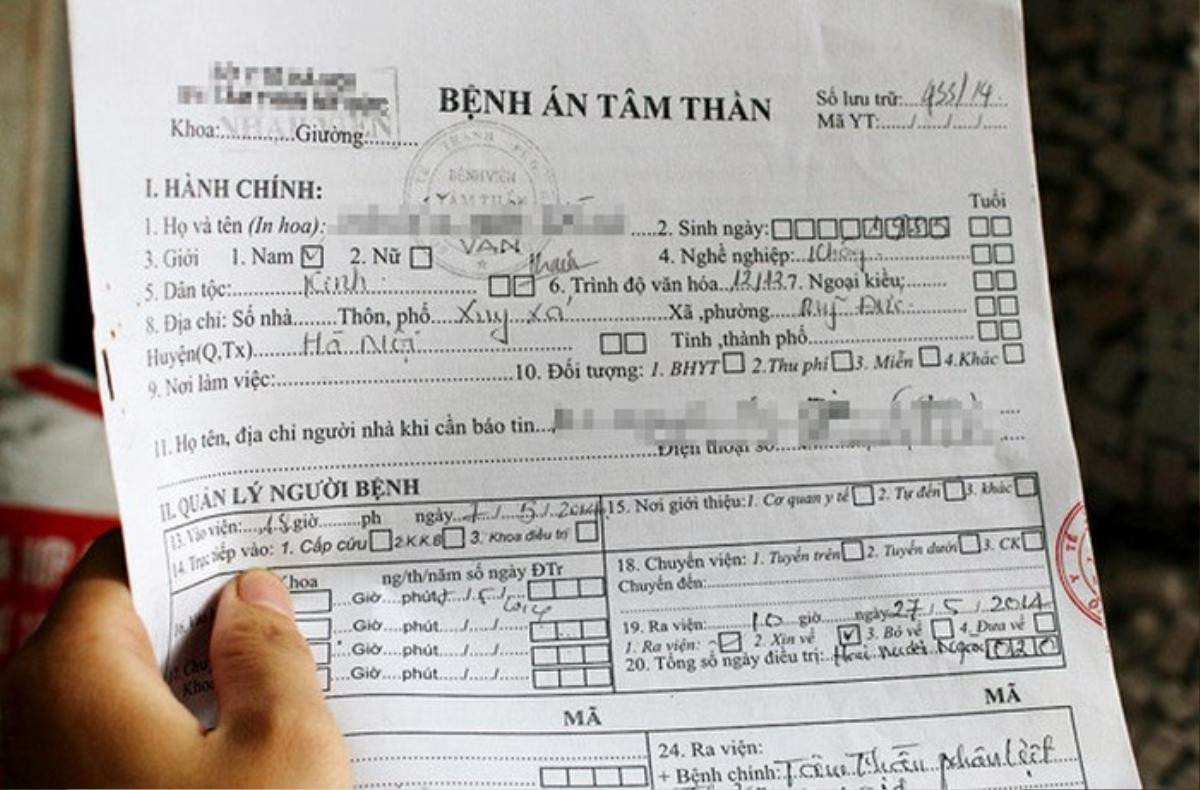 BỆNH ÁN TÂM THẦN
Số lưu trữ: 455/14
Mã YT:..../..../..../....
Khoa:............Giường:.........
BỆNH VIỆN
TÂM THẦN
I. HÀNH CHÍNH:
Tuổi
1. Họ và tên (In hoa):
2. Sinh ngày: 1985
VAN
3. Giới 1. Nam 2. Nữ
4. Nghề nghiệp: Không
5. Dân tộc: Kinh
6. Trình độ văn hóa 12/12 7. Ngoại kiều:
8. Địa chỉ: Số nhà........Thôn, phố Xuy xá Xã ,phường Mỹ Đức
Huyện(Q,Tx) Hà Nội Tỉnh ,thành phố
9. Nơi làm việc: 10. Đối tượng: 1. BHYT 2.Thu phí 3. Miễn 4.Khác
11. Họ tên, địa chỉ người nhà khi cần báo tin
Điện thoại số
II. QUẢN LÝ NGƯỜI BỆNH
13. Vào viện: 15 giờ........ph ngày 7/5/2014
14. Trực tiếp vào: 1. Cấp cứu 2.K.K.B 3. Khoa điều trị
Khoa ng/th/năm số ngày ĐTr
Giờ....phút 5 2014
Giờ....phút..../..../....
Giờ....phút..../..../....
Giờ....phút..../..../....
15. Nơi giới thiệu: 1. Cơ quan y tế 2. Tự đến 3. khác
18. Chuyển viện: 1. Tuyến trên 2. Tuyến dưới 3. CK
Chuyển đến:
19. Ra viện: 10 giờ ngày 27/5/2014
1. Ra viện: 2. Xin về 3. Bỏ về 4. Đưa về
20. Tổng số ngày điều trị: Hai mươi Ngày 020
MÃ
MÃ
24. Ra viện:
+ Bệnh chính: Tâm Thần phân liệt
Y TẾ